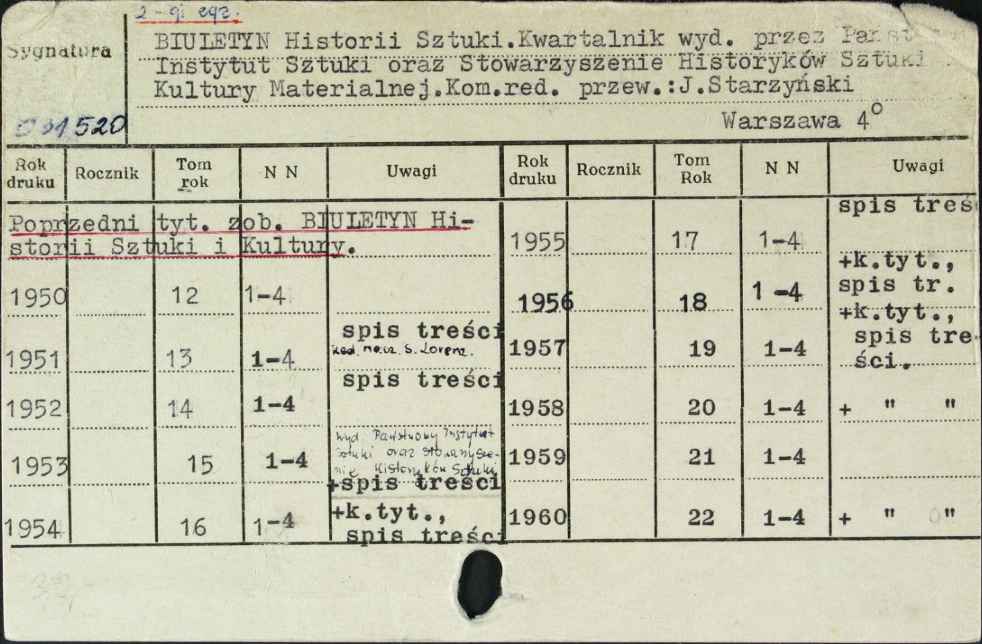 2-gi egz.
Sygnatura
BIULETYN Historii Sztuki.Kwartalnik wyd. przez Państ
Instytut Sztuki oraz Stowarzyszenie Historyków Sztuki
Kultury Materialnej.Kom.red. przew.:J.Starzyński
520 Warszawa 4°
Rok druku Rocznik Tom rok N N Uwagi Rok druku Rocznik Tom Rok N N Uwagi
Poprzedni tyt. zob. BIULETYN Hi-
storii Sztuki i Kultury.
1950 12 1-4
1951 13 1-4 spis treści
Red. nacz. S. Lorenz.
1952 14 1-4 spis treści
1953 15 1-4 wyd. Państwowy Instytut
Sztuki oraz Stowarzysze-
nie Historyków Sztuki
+spis treści
1954 16 1-4 +k.tyt.,
spis treści
1955 17 1-4 spis treś
1956 18 1-4 +k.tyt.,
spis tr.
1957 19 1-4 +k.tyt.,
spis tre-
ści.
1958 20 1-4 + " "
1959 21 1-4
1960 22 1-4 + " "